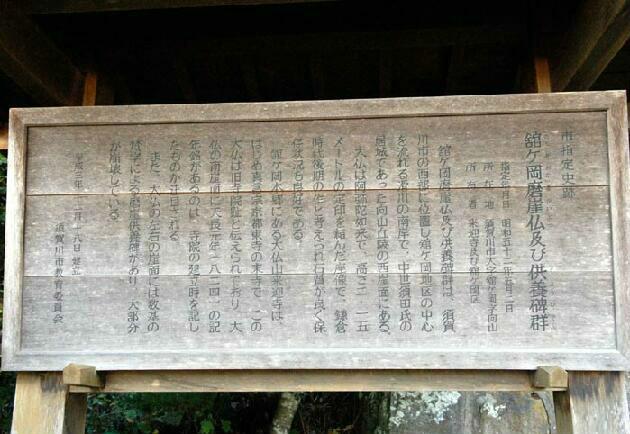 市指定史跡
舘ヶ岡磨崖仏及び供養碑群
指定年月日 昭和五十二年 月二日
所在地 須賀川市大字舘ヶ岡字向山
所有者 来迎寺及び舘ヶ岡区
舘ヶ岡磨崖仏及び供養碑群は、須賀
川市の西部に位置し舘ヶ岡地区の中心
を流れる 川の南岸で、中世須田氏の
居城であった向山丘陵の西崖面にある。
大仏は阿弥陀如来で、高さ二・一五
メートルの定印を結んだ座像で、鎌倉
時代後期の作と考えられ石質が良く保
存状況も良好である。
舘ヶ岡本郷にある大仏山来迎寺は、
はじめ真言宗京都東寺の末寺で、この
大仏は旧寺院 と伝えられており、大
仏の南崖面に大長元年(八二四)の記
年銘があるのは、寺院の建立時を記し
たものと注目される。
また、大仏の左右の崖面には数基の
梵字による磨崖供養碑があり、大部分
が崩壊している。
平成三年 月一八日 建立
須賀川市教育委員会